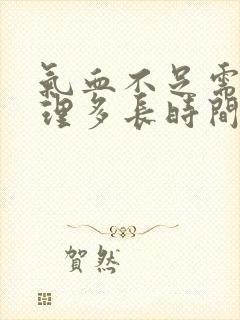 氣血不足需
理多長時間
賀然